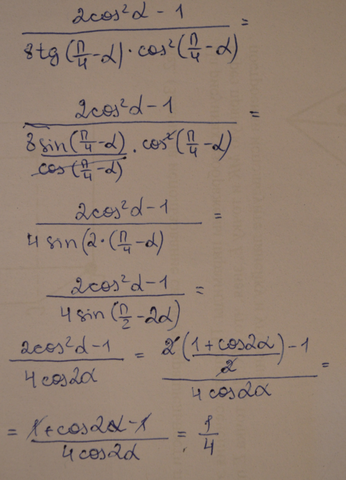 (2cos²α - 1)/(8tg(π/4-α)·cos²(π/4-α)) =
(2cos²α - 1)/(8 sin(π/4-α)/cos(π/4-α) · cos²(π/4-α)) =
(2cos²α - 1)/(4sin(2·(π/4-α)) =
(2cos²α - 1)/(4sin(π/2-2α)) =
(2cos²α-1)/(4cos2α) = (2((1+cos2α)/2)-1)/(4cos2α) =
= (1+cos2α-1)/(4cos2α) = 1/4